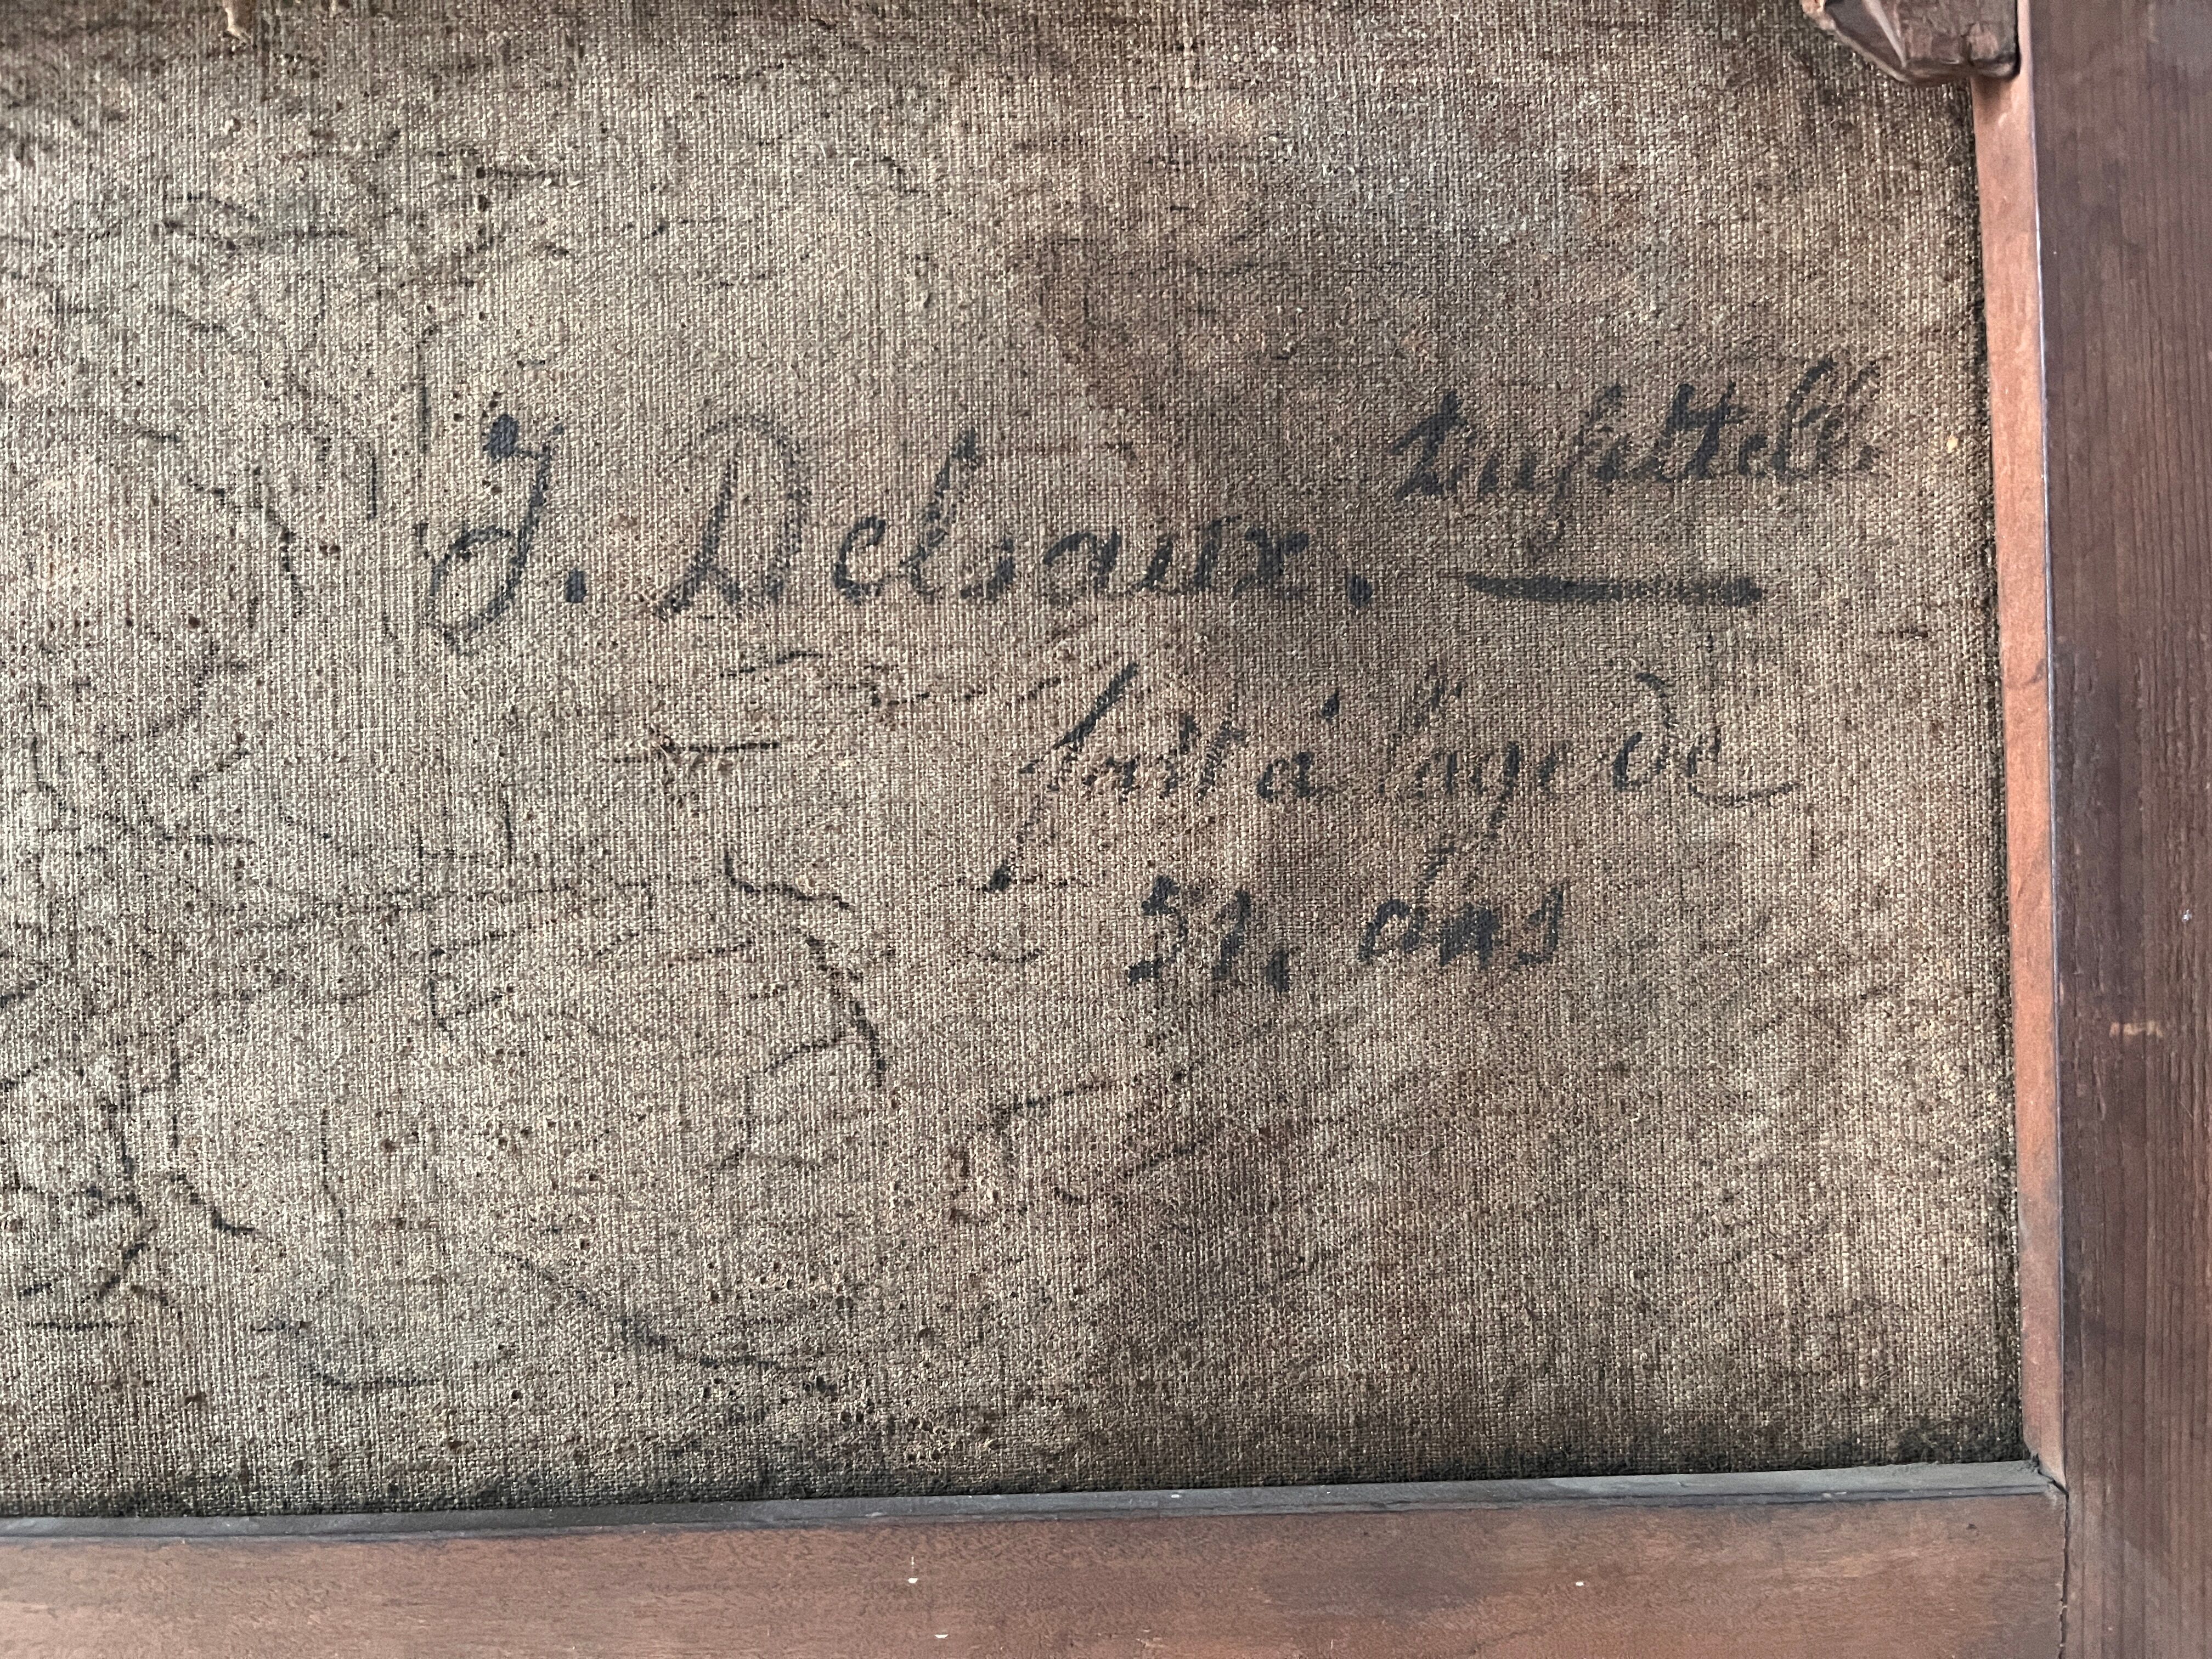 J. Delsaux.
fait à l'age de
51, ans